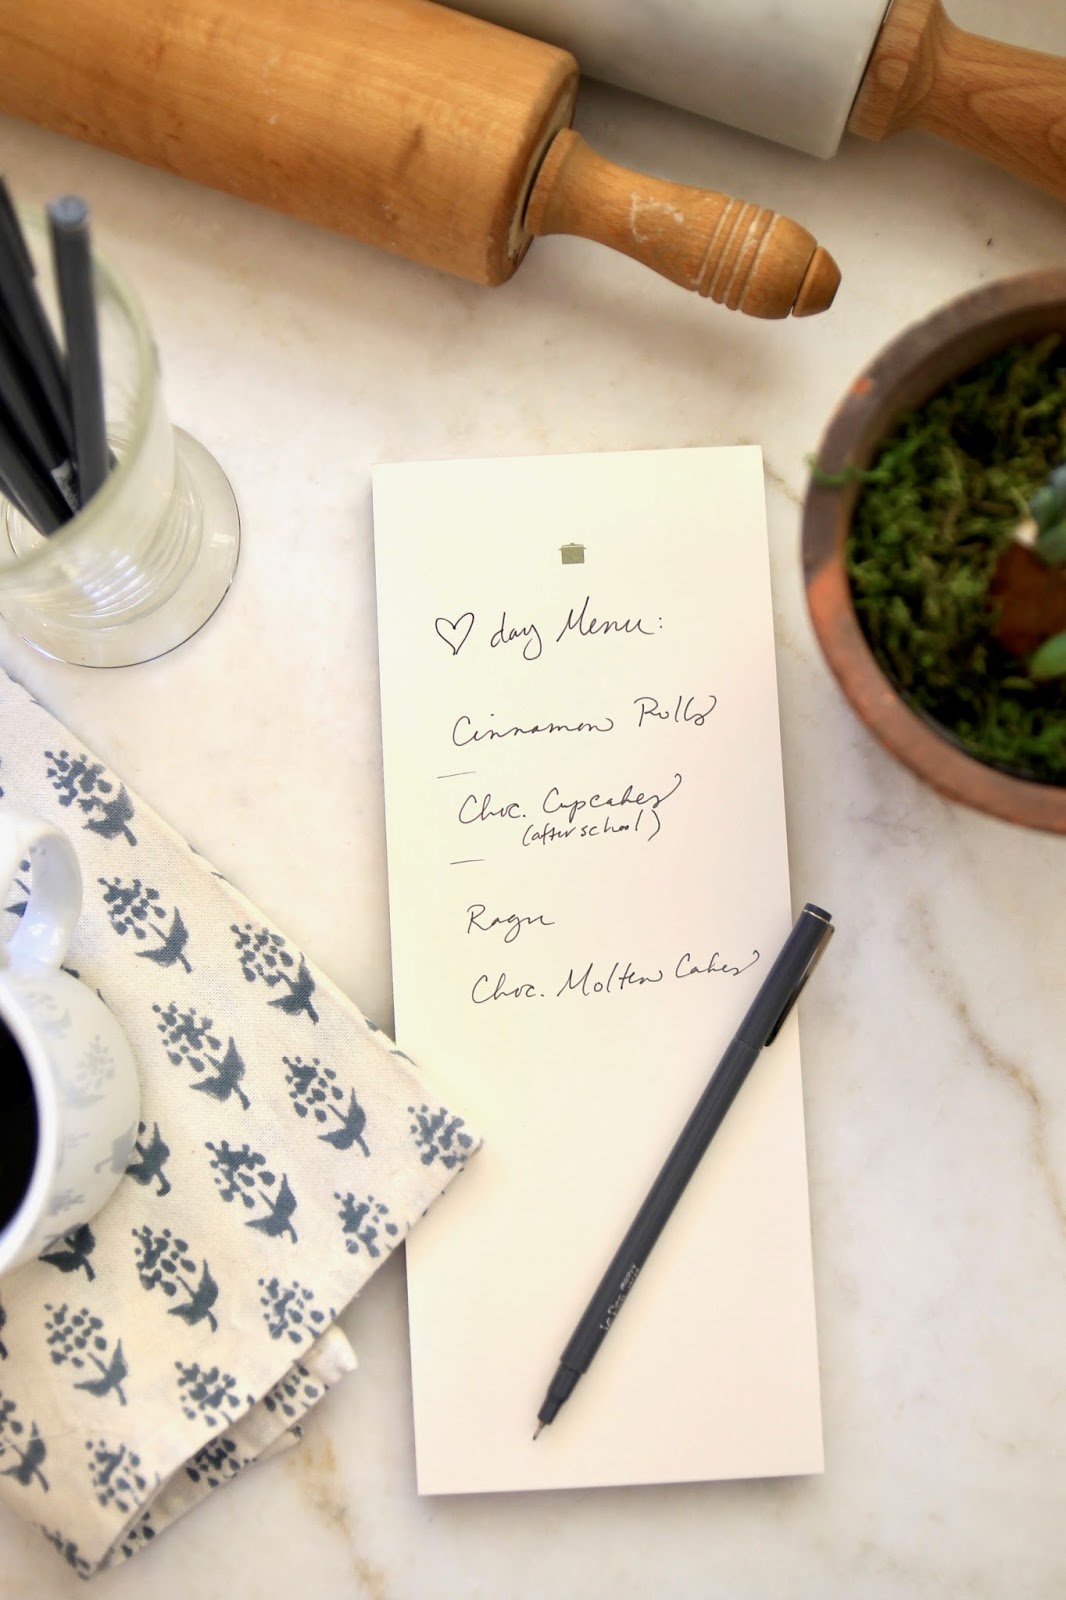 ♡ day Menu:
Cinnamon Rolls
Choc. Cupcakes
(after school)
Ragu
Choc. Molten Cakes
Le Pen